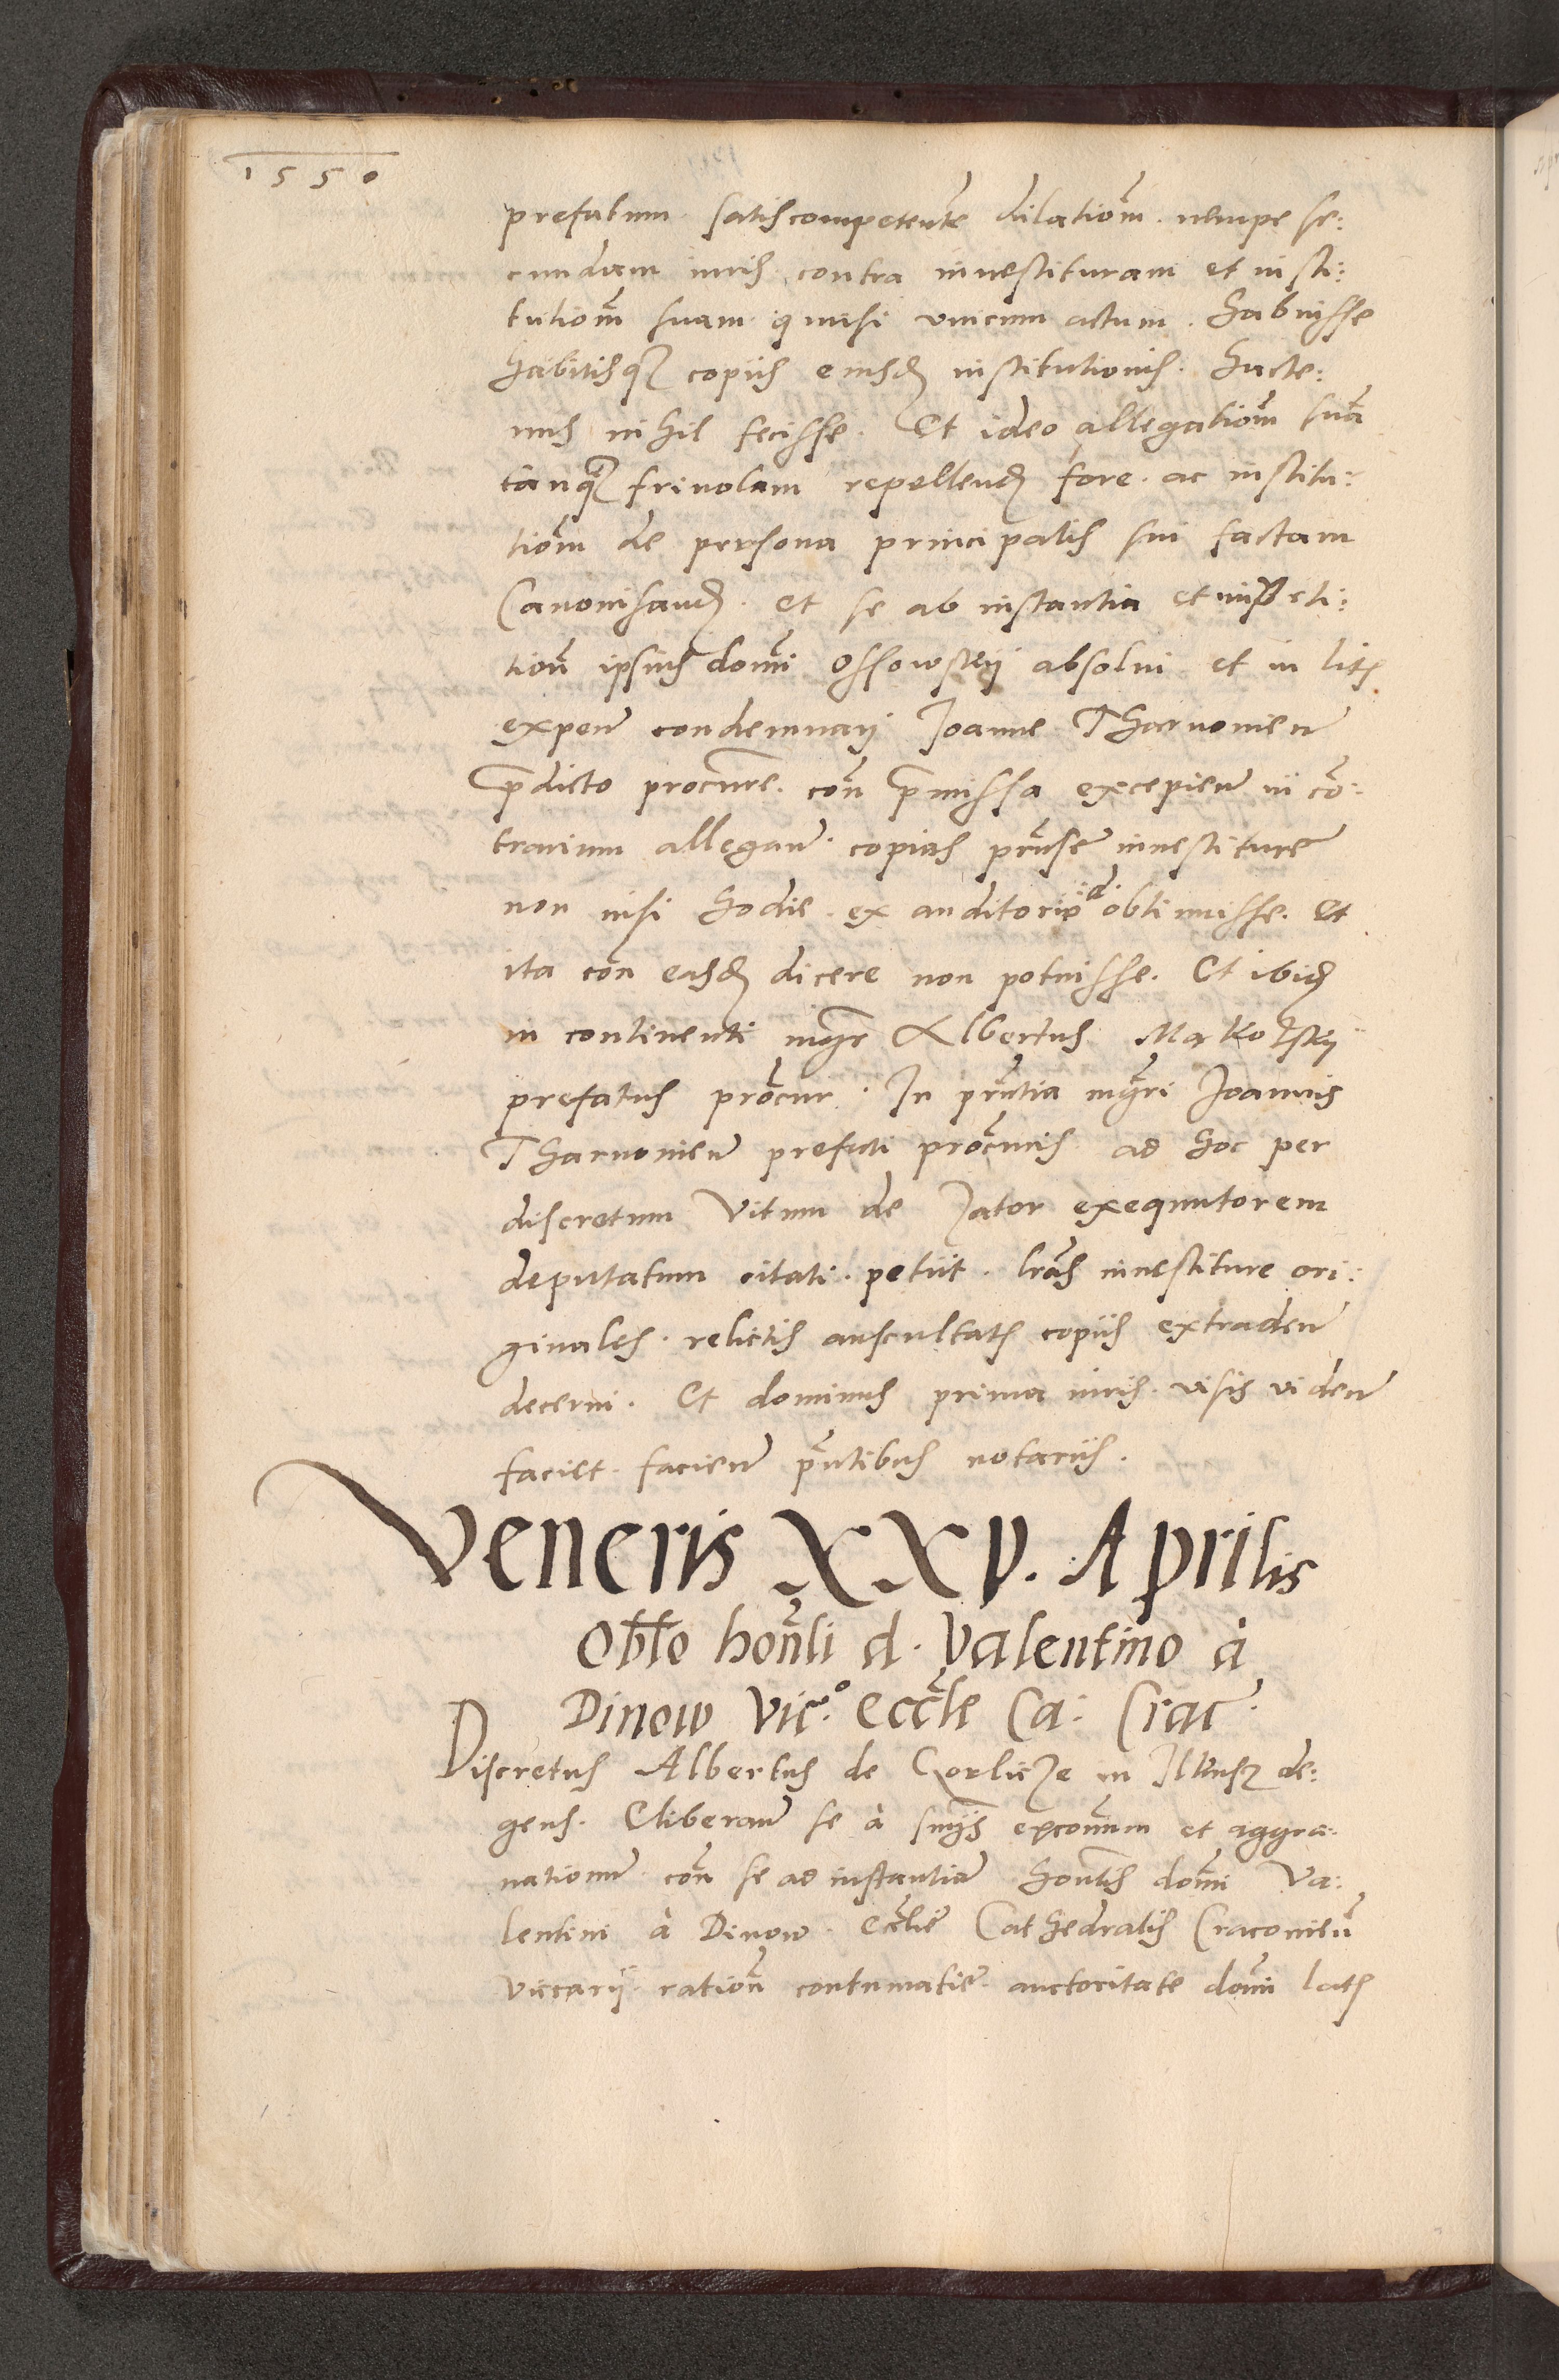 1550
prefatum satis competente dilatiom̃. nempe se:
cundam iuris contra inuestituram et insti:
tutiom̃ suam quasi vnicum actum. habuisse
habitisq; copiis eiusd institutionis. Hacte:
nus nihil fecisse. Et ideo allegatiom̃ suã
tanq; friuolam repellend fore. ac institu:
tiom̃ de persona principalis sui factam
Canonisand. et se ab instantia et impeti:
tion̄ ipsius dom̃i Ossowskij absolui et in lit
expen condemnarj Joanne Tharnouien
p̄dicto procure. con̄ p̄missa excepien in cō:
trarium allegan. copias prñse inuestiture
non nisi hodie ex auditorio d. obtinuisse. Et
ita con̄ easd dicere non potuisse. Et ibid
in continenti mgr Albertus Makolskij
prefatus prõcur. In prñtia mg̃ri Joannis
Tharnouien prefati procũris ad hoc per
discretum Vitum de Zator exequutorem
deputatum citati. petiit. lrãs inuestiture ori:
ginales. relictis auscultat copiis extraden
decerni. Et dominus prima iuris. visis viden
faciet. facien p̃ntibus notariis.
Veneris XXV. Aprilis
Obt̄o hon̄li d. Valentino à
Dinow Vic.º eccle Ca: Crac
Discretus Albertus de Gorlicze in Ilkusz de:
gens. Cliberan se à sniis excomm et aggra:
uationum con̄ se ad instantiam honlis dom̃i Va:
lentini à Dinow. Ecclie Cathedralis Cracouien
viccarij. ration̄ contumatie. auctoritate dom̃i lat